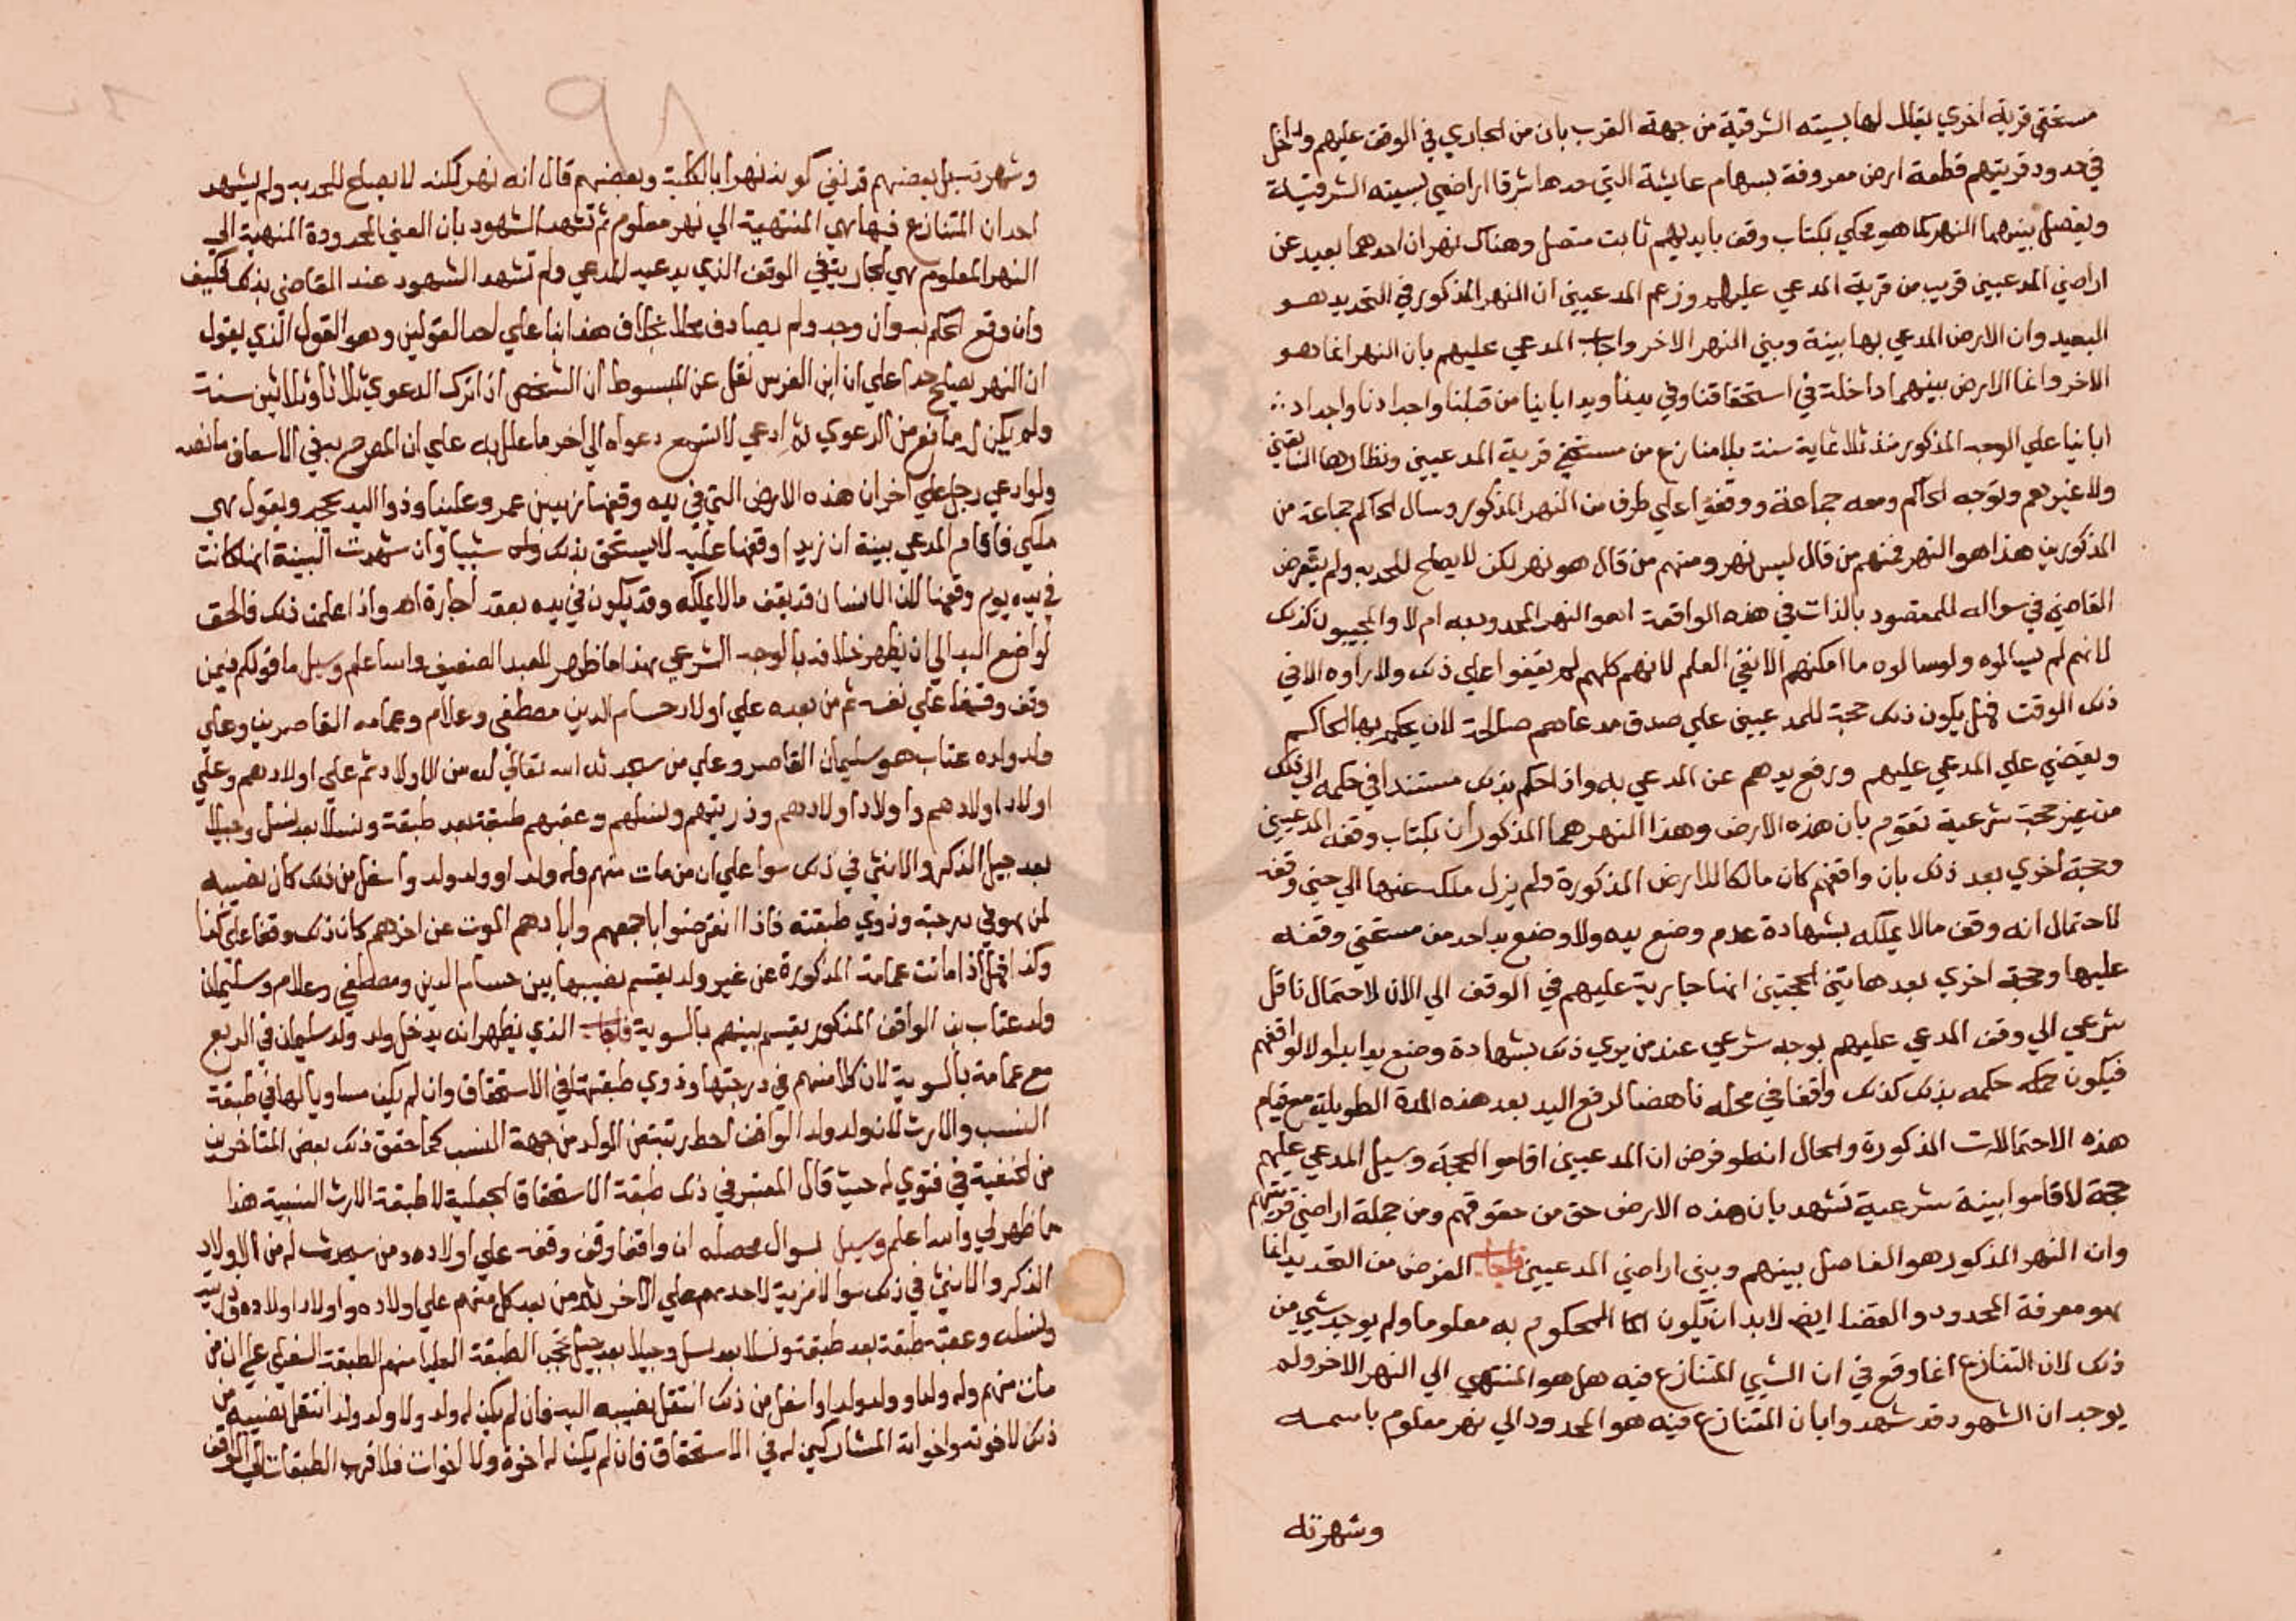 مستحقي قرية اخري يقال لها بسيته الشرقية من جهة الغرب بان من الجاري في الوقف عليهم وداخل
في حدود قريتهم قطعة ارض معروفة بسهام عايشة التي حدها شرقا اراضي بسيته الشرقية
ويفصل بينهما النهر كما هو محكي بكتاب وقف بايديهم ثابت متصل وهناك نهران احدهما بعيد عن
اراضي المدعيين قريب من قرية المدعي عليهم وزعم المدعيين ان النهر المذكور في التحديد هو
البعيد وان الارض المدعي بها بينه وبين النهر الاخر واجاب المدعي عليهم بان النهر انما هو
الاخر وانما الارض بينهما داخلة في استحقاقنا وفي يدنا ويد ابائنا من قبلنا واجدادنا واجداد
ابائنا علي الوجه المذكور منذ ثلاثماية سنة بلا منازع من مستحقي قرية المدعيين ونظارها السابقين
ولا غيرهم وتوجه الحاكم ومعه جماعة ووقفوا علي طرف من النهر المذكور وسال الحاكم جماعة من
المذكورين هذا هو النهر فمنهم من قال ليس نهر ومنهم من قال هو نهر لكن لا يصلح للحد به ولم يتعرض
القاضي في سواله للمقصود بالذات في هذه الواقعة اهو النهر المحدود به ام لا والمجيبون كذلك
لانهم لم يسالوه ولو سالوه ما امكنهم الا نفي العلم لانهم كلهم لم يقفوا علي ذلك ولا راوه الا في
ذلك الوقت فهل يكون ذلك حجة للمدعيين علي صدق مدعاهم صالحة لان يحكم بها الحاكم
ويقضي علي المدعي عليهم ورفع يدهم عن المدعي به واذا حكم بذلك مستندا في حكمه الي ذلك
من غير حجة شرعية تقوم بان هذه الارض وهذا النهر هما المذكوران بكتاب وقف المدعيين
وحجة اخري بعد ذلك بان واقفهم كان مالكا للارض المذكورة ولم يزل ملكه عنها الي حين وقفه
لاحتمال انه وقف ما لا يملكه بشهادة عدم وضع يده ولا وضع يد احد من مستحقي وقفه
عليها وحجة اخري بعد هاتين الحجتين انها جارية عليهم في الوقف الي الان لاحتمال ناقل
شرعي الي وقف المدعي عليهم بوجه شرعي عند من يري ذلك بشهادة وضع يد ابد اولا لواقفهم
فيكون حكمه بذلك كذلك واقعا في محله ناهضا لرفع اليد بعد هذه المدة الطويلة مع قيام
هذه الاحتمالات المذكورة والحال انه لو فرض ان المدعيين اقاموا الحجة وسيل المدعي عليهم
حجة لاقاموا بينة شرعية تشهد بان هذه الارض حق من حقوقهم ومن جملة اراضي قريتهم
وان النهر المذكور هو الفاصل بينهم وبين اراضي المدعيين فاجاب الغرض من التحديد انما
هو معرفة المحدود والقضا ايضا لابد ان يكون المحكوم به معلوما ولم يوجد شي من
ذلك لان التنازع انما وقع في ان الشي المتنازع فيه هل هو المنتهي الي النهر الاخر ولم
يوجد ان الشهود قد شهدوا بان المتنازع فيه هو المحدود الي نهر معلوم باسمه
وشهرته
١٩٨
وشهرته بل بعضهم قد نفي كونه نهرا بالكلية وبعضهم قال انه نهر لكنه لا يصلح للحد به ولم يشهد
احد ان المتنازع فيها هي المنتهية الي نهر معلوم ثم تشهد الشهود بان العين المحدودة المنهية الي
النهر المعلوم هي الجارية في الوقف الذي يدعيه المدعي ولم تشهد الشهود عند القاضي بذلك فكيف
وان وقع الحكم به وان وجد ولم يصادف محلا بخلاف هذا بنا علي احد القولين وهو القول الذي يقول
ان النهر يصلح حدا علي ان ابن الغرس نقل عن المبسوط ان الشخص اذا ترك الدعوي ثلاثا وثلاثين سنة
ولم يكن له مانع من الدعوي ثم ادعي لا تسمع دعواه الي اخر ما علل به علي ان المصرح به في الاسعاف ما نصه
ولو ادعي رجل علي اخر ان هذه الارض التي في يده وقفها زيد بن عمرو علينا وذو اليد يجحد ويقول هي
ملكي فاقام المدعي بينة ان زيدا وقفها عليه لا يستحق بذلك شيا وان شهدت البينة انها كانت
في يده يوم وقفها لان الانسان قد يقف ما لا يملكه وقد يكون في يده بعقد اجارة اه واذا علمت ذلك فالحق
لواضع اليد الي ان يظهر خلافه بالوجه الشرعي هذا ما ظهر للعبد الضعيف والله اعلم وسيل ما قولكم فيمن
وقف وقفا علي نفسه ثم من بعده علي اولاد حسام الدين مصطفي وعلام وعمامه القاصرين وعلي
ولد ولده عتاب هو سليمان القاصر وعلي من سيحدثه الله تعالي له من الاولاد ثم علي اولادهم وعلي
اولاد اولادهم واولاد اولادهم وذريتهم ونسلهم وعقبهم طبقة بعد طبقة ونسلا بعد نسل وجيلا
بعد جيل الذكر والانثي في ذلك سوا علي ان من مات منهم وله ولد او ولد ولد واسفل من ذلك كان نصيبه
لمن هو في درجته وذوي طبقته فاذا انقرضوا باجمعهم وابادهم الموت عن اخرهم كان ذلك وقفا علي كذا
وكذا فهل اذا ماتت عمامة المذكورة عن غير ولد يقسم نصيبها بين حسام الدين ومصطفي وعلام وسليمان
ولد عتاب بن الواقف المذكور يقسم بينهم بالسوية فاجاب الذي يظهر انه يدخل ولد ولد سليمان في الربع
مع عمامة بالسوية لان كلا منهم في درجتها وذوي طبقتها في الاستحقاق وان لم يكن مساويا لها في طبقة
النسب والارث لان ولد ولد الواقف احط رتبة من الولد من جهة النسب كما حقق ذلك بعض المتاخرين
من الحنفية في فتوي له حيث قال المعتبر في ذلك طبقة الاستحقاق الجعلية لا طبقة الارث النسبية هذا
ما ظهر لي والله اعلم وسيل بسوال محصله ان واقفا وقف وقفه علي اولاده ومن سيحدث له من الاولاد
الذكر والانثي في ذلك سوا لا مزية لاحدهم علي الاخر ثم من بعد كل منهم علي اولاده واولاد اولاده وذريته
ونسله وعقبه طبقة بعد طبقة ونسلا بعد نسل وجيلا بعد جيل تحجب الطبقة العليا منهم الطبقة السفلي علي ان من
مات منهم وله ولد او ولد ولد او اسفل من ذلك انتقل نصيبه اليه فان لم يكن له ولد ولا ولد ولد انتقل نصيبه من
ذلك لاخوته واخواته المشاركين له في الاستحقاق فان لم يكن له اخوة ولا اخوات فلاقرب الطبقات الي الواقف